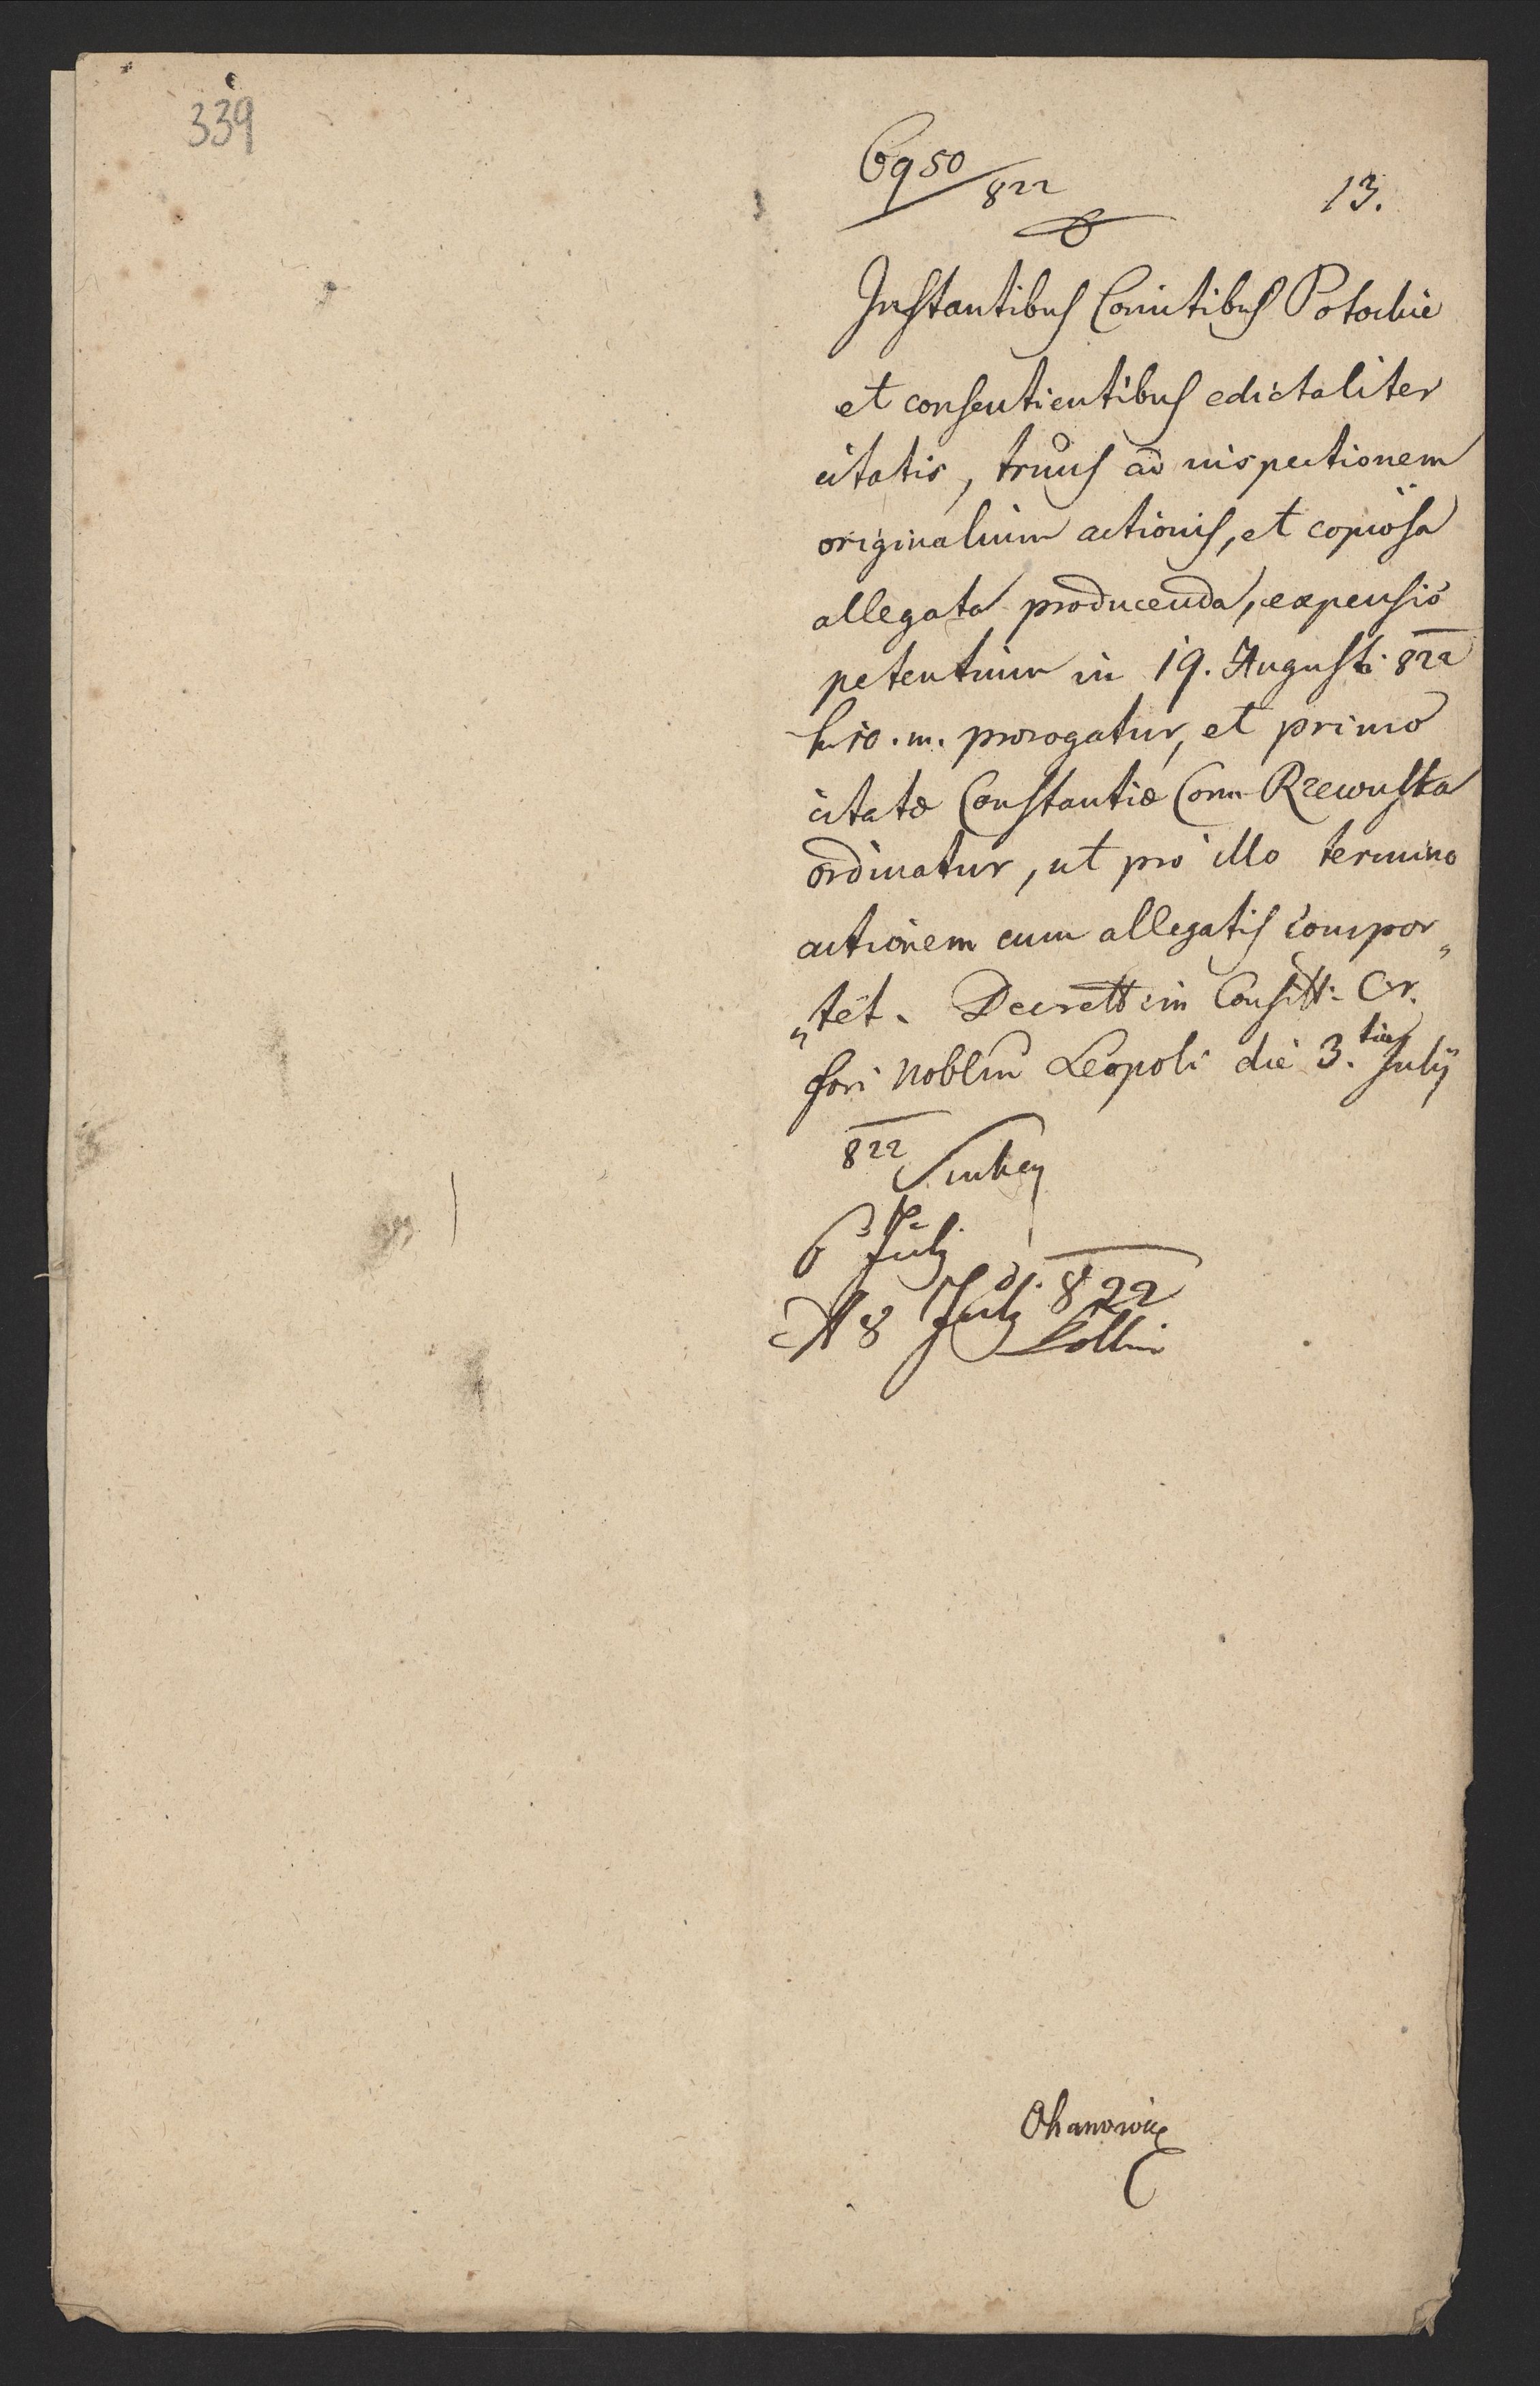 339
6950/822
13.
Instantibus Comitibus Potockie
et consentientibus edictaliter
citatis, trmus ad inspectionem
originalium actionis, et copiosa
allegata producenda, expensis
petentium in 19. Augusti 822
h. 10. m. prorogatur, et primo
citatæ Constantiæ Com Rzewuska
ordinatur, ut pro illo termino
actionem cum allegatis compor„
„tet. Decrett in Consitt: Cr.
fori Noblm Leopoli die 3.tia July
822
6 July
8 July 822
Kollin
Ohanowicz